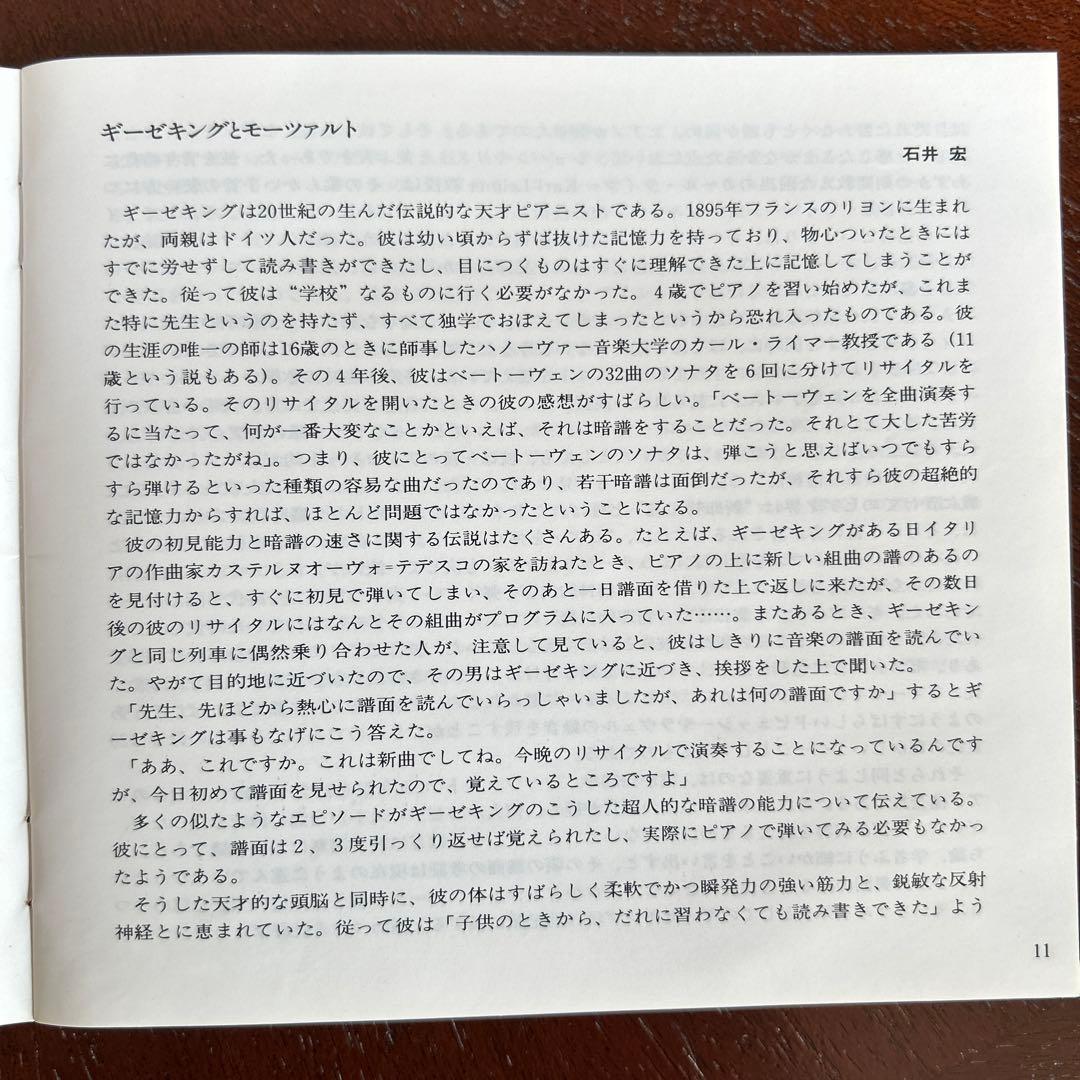 ギーゼキングとモーツァルト
石井 宏
ギーゼキングは20世紀の生んだ伝説的な天才ピアニストである。1895年フランスのリヨンに生まれ
たが、両親はドイツ人だった。彼は幼い頃からずば抜けた記憶力を持っており、物心ついたときには
すでに労せずして読み書きができたし、目につくものはすぐに理解できた上に記憶してしまうことが
できた。従って彼は“学校”なるものに行く必要がなかった。4歳でピアノを習い始めたが、これま
た特に先生というのを持たず、すべて独学でおぼえてしまったというから恐れ入ったものである。彼
の生涯の唯一の師は16歳のときに師事したハノーヴァー音楽大学のカール・ライマー教授である(11
歳という説もある)。その4年後、彼はベートーヴェンの32曲のソナタを6回に分けてリサイタルを
行っている。そのリサイタルを開いたときの彼の感想がすばらしい。「ベートーヴェンを全曲演奏す
るに当たって、何が一番大変なことかといえば、それは暗譜をすることだった。それとて大した苦労
ではなかったがね」。つまり、彼にとってベートーヴェンのソナタは、弾こうと思えばいつでもすら
すら弾けるといった種類の容易な曲だったのであり、若干暗譜は面倒だったが、それすら彼の超絶的
な記憶力からすれば、ほとんど問題ではなかったということになる。
彼の初見能力と暗譜の速さに関する伝説はたくさんある。たとえば、ギーゼキングがある日イタリ
アの作曲家カステルヌオーヴォ=テデスコの家を訪ねたとき、ピアノの上に新しい組曲の譜のあるの
を見付けると、すぐに初見で弾いてしまい、そのあと一日譜面を借りた上で返しに来たが、その数日
後の彼のリサイタルにはなんとその組曲がプログラムに入っていた……。またあるとき、ギーゼキン
グと同じ列車に偶然乗り合わせた人が、注意して見ていると、彼はしきりに音楽の譜面を読んでい
た。やがて目的地に近づいたので、その男はギーゼキングに近づき、挨拶をした上で聞いた。
「先生、先ほどから熱心に譜面を読んでいらっしゃいましたが、あれは何の譜面ですか」するとギ
ーゼキングは事もなげにこう答えた。
「ああ、これですか。これは新曲でしてね。今晩のリサイタルで演奏することになっているんです
が、今日初めて譜面を見せられたので、覚えているところですよ」
多くの似たようなエピソードがギーゼキングのこうした超人的な暗譜の能力について伝えている。
彼にとって、譜面は2、3度引っくり返せば覚えられたし、実際にピアノで弾いてみる必要もなかっ
たようである。
そうした天才的な頭脳と同時に、彼の体はすばらしく柔軟でかつ瞬発力の強い筋力と、鋭敏な反射
神経とに恵まれていた。従って彼は「子供のときから、だれに習わなくても読み書きできた」よう
11